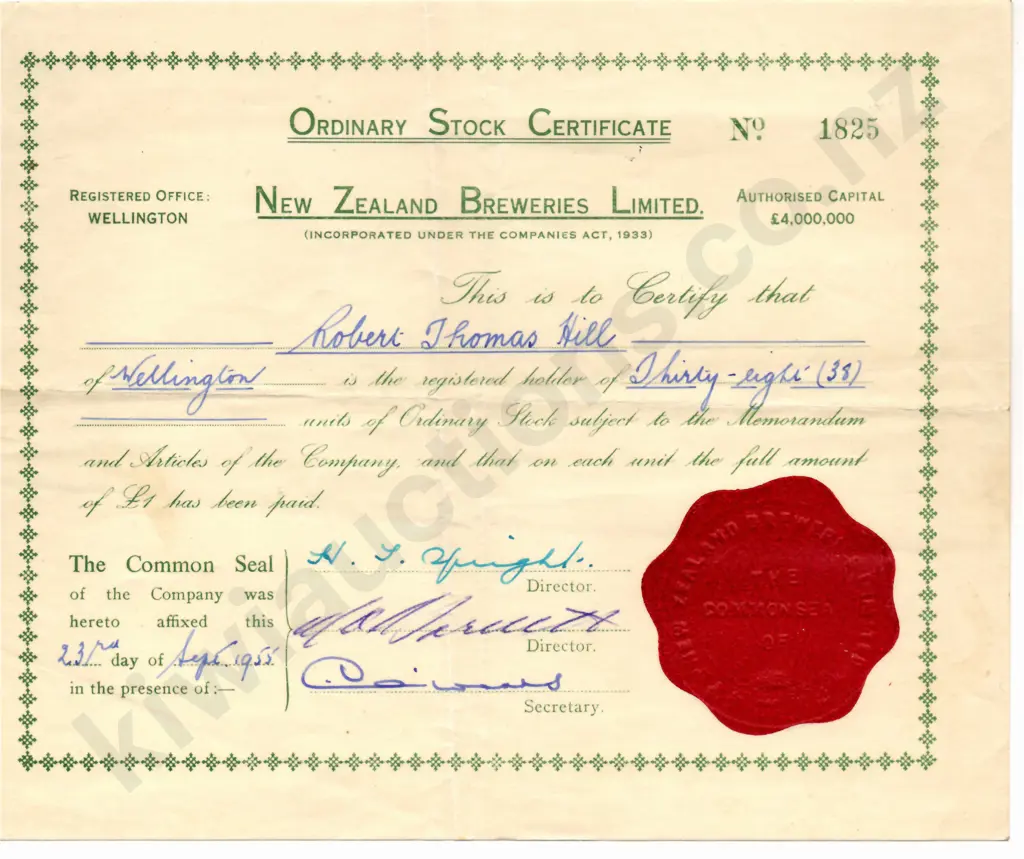 ORDINARY STOCK CERTIFICATE Nº 1825
REGISTERED OFFICE:
WELLINGTON
NEW ZEALAND BREWERIES LIMITED.
(INCORPORATED UNDER THE COMPANIES ACT, 1933)
AUTHORISED CAPITAL
£4,000,000
This is to Certify that
Robert Thomas Hill
of Wellington is the registered holder of Thirty-eight (38)
units of Ordinary Stock subject to the Memorandum
and Articles of the Company, and that on each unit the full amount
of £1 has been paid.
The Common Seal
of the Company was
hereto affixed this
23rd day of Sept. 1955
in the presence of:—
Director.
Director.
Secretary.
NEW ZEALAND BREWERIES LIMITED
THE
COMMON SEAL
OF
kiwiauctions.co.nz